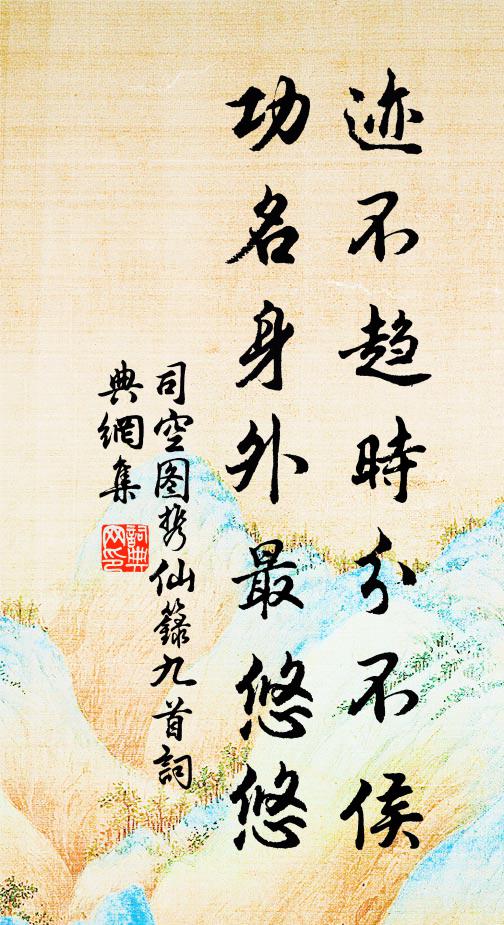 迹不趋時分不侯
功名身外最悠悠
司空图携仙籙九首詞
典網集
詞典
网印